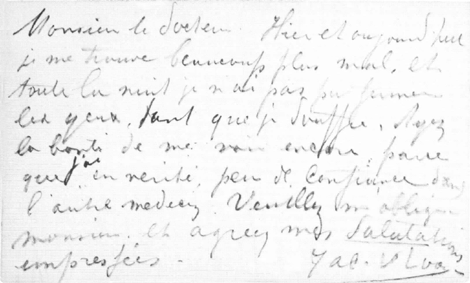 Monsieur le docteur. Hier et aujourd'hui
je me trouve beaucoup plus mal, et
toute la nuit je n'ai pas pu fermer
les yeux, tant que je souffre. Ayez
la bonté de me voir encore, parce
que j'ai en verité, peu de confiance dans
l'autre medecin. Veuillez m'obliger
monsieur. et agreez mes Salutations
empressées.